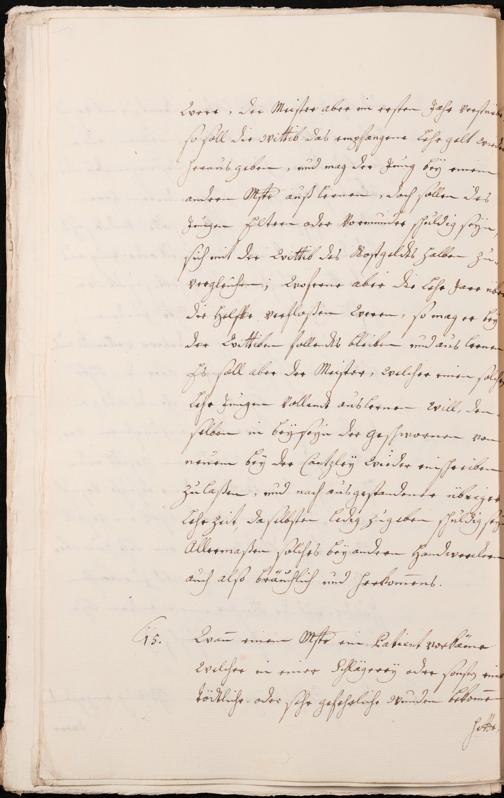 Were, der Meister aber im ersten Jahr versturbe
so soll die Wittib das empfangene Lehr gelt wieder
heraus geben, und mag der Jung bey einem
andern Mstr auslernen, doch sollen des
Jungen Eltern oder Vormünder schuldig seyn,
sich mit der Wittib des Kostgeldts halben zu
vergleichen; Wofern aber die Lehr Jare über
die Helfte verflossen Weren, so mag er bey
der Wittiben vollendts bleiben und aus lernen
Es soll aber der Meister, Welcher einen solchen
Lehr Jungen vollendt auslernen Will, den
selben in beyseyn der Geschwornen von
neuem bey der Cantzley Wieder einschreiben
zulassen, und nach ausgestandener übriger
Lehr Zeit, daselbsten ledig zugeben, schuldig seyn
Allermassen solches bey andern Handwerckern
auch also bräuchlich und herkommens.
15. Wann einem Mstr ein Patient vorkäme
Welcher in einer Schlägerey oder sonst eine
tödtliche oder sehr gefehrliche Wunden bekommen
hette,